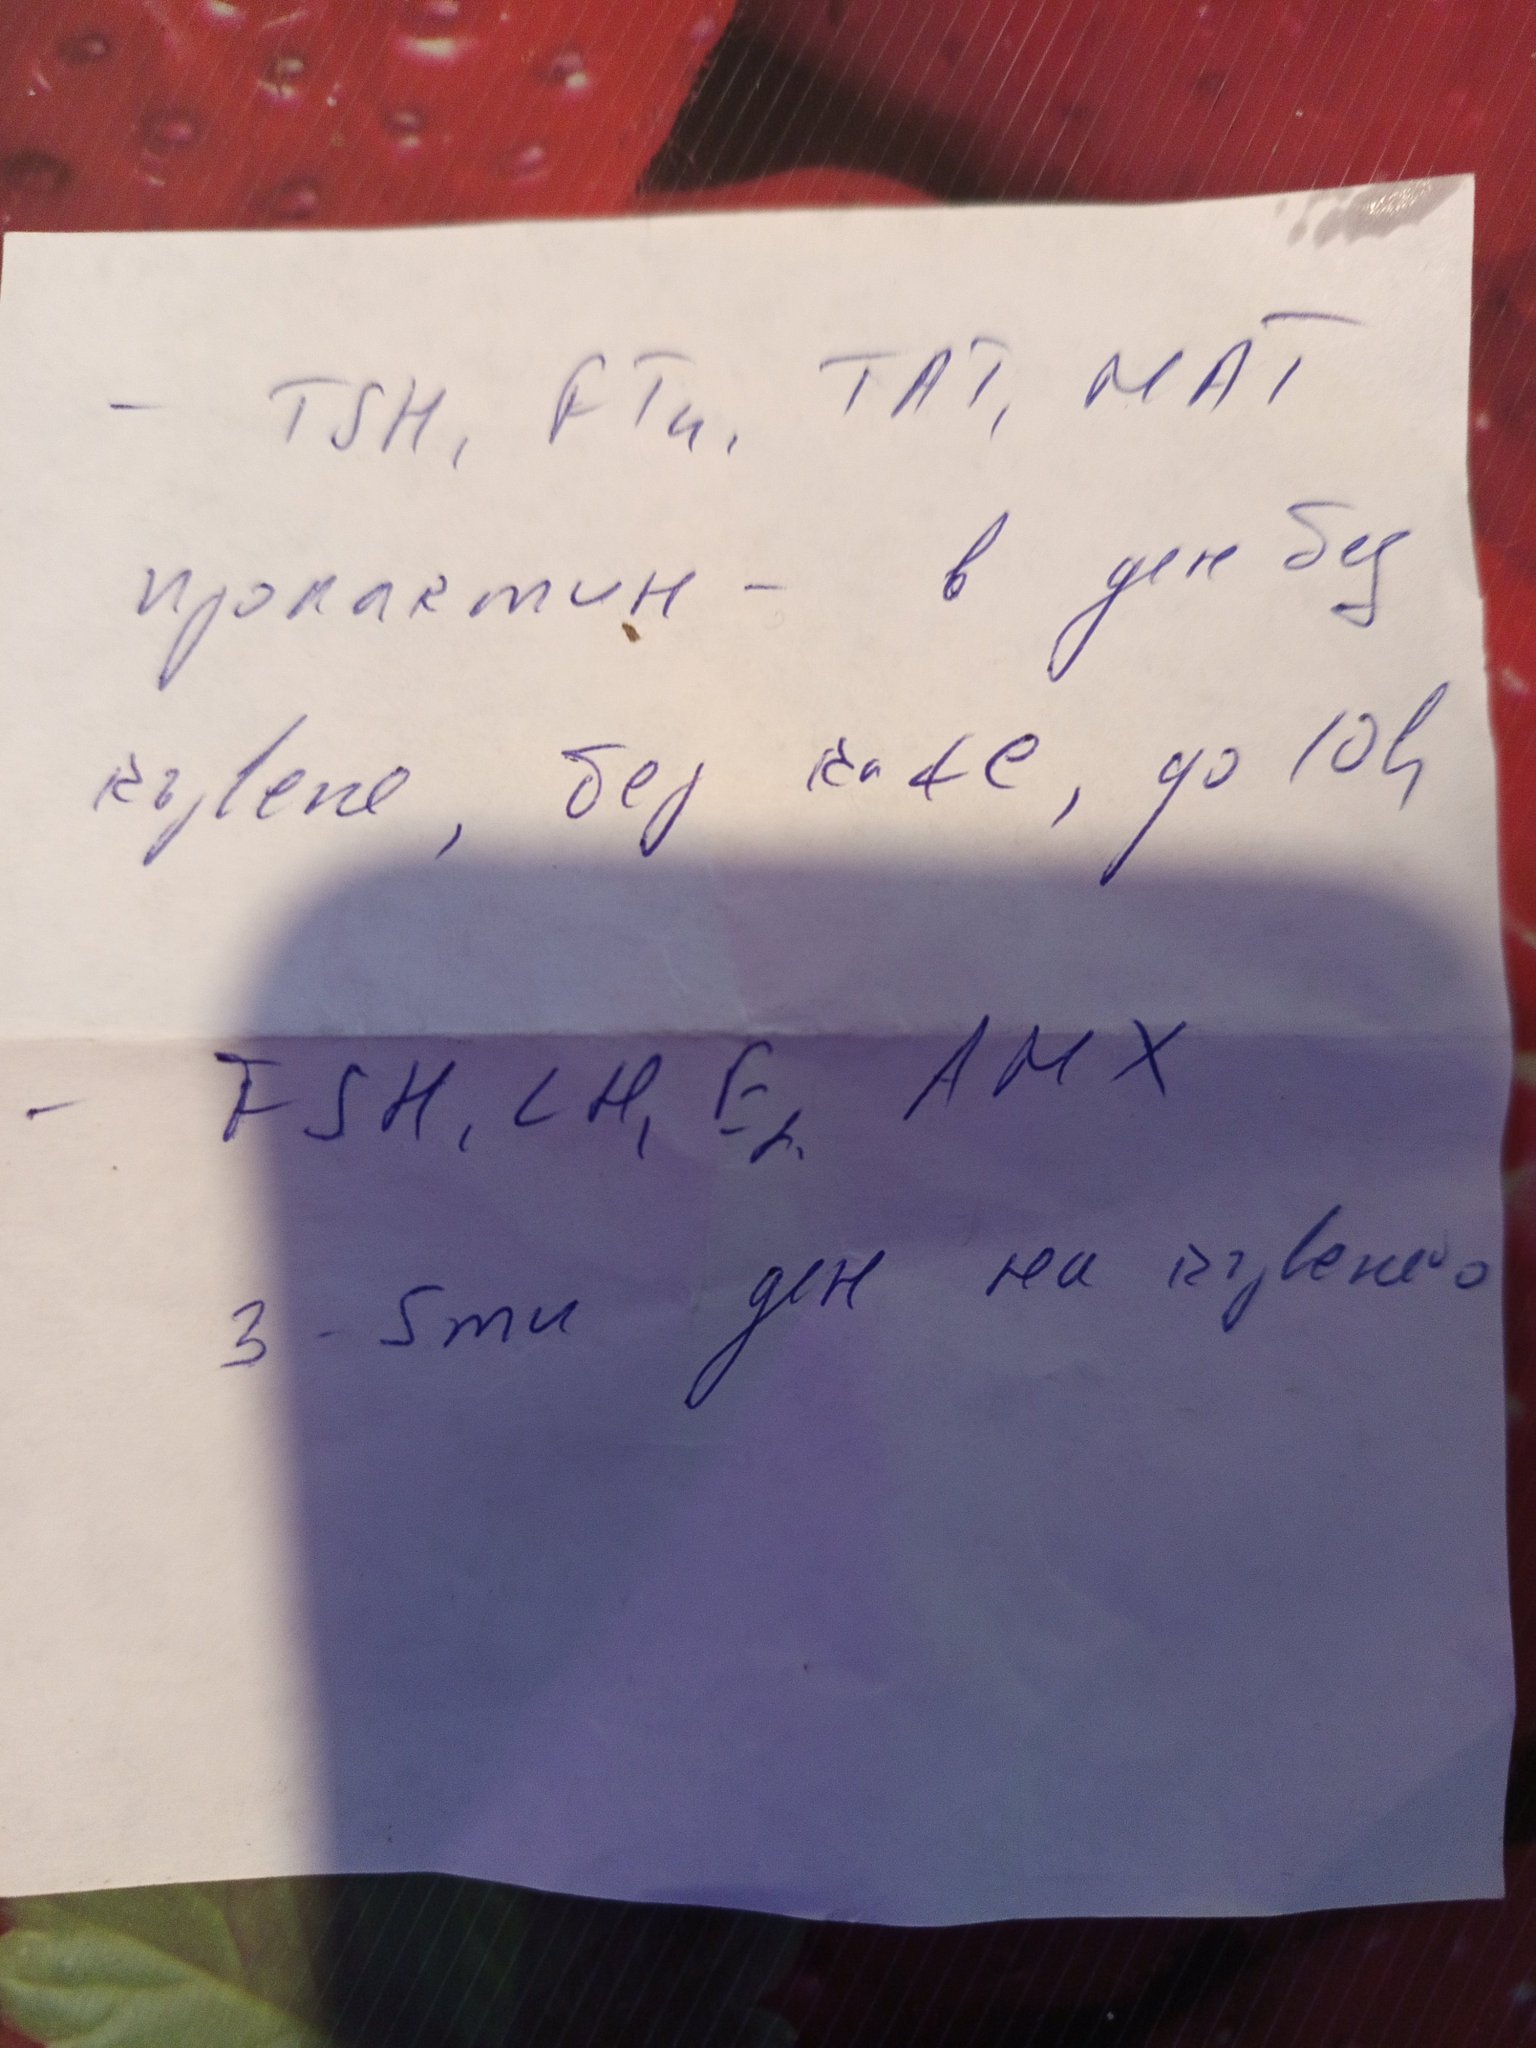 - TSH, FT4, TAT, MAT
пролактин - в ден без
кървене, без кафе, до 10h
- FSH, LH, E2, AMX
3-5ти ден на кървене